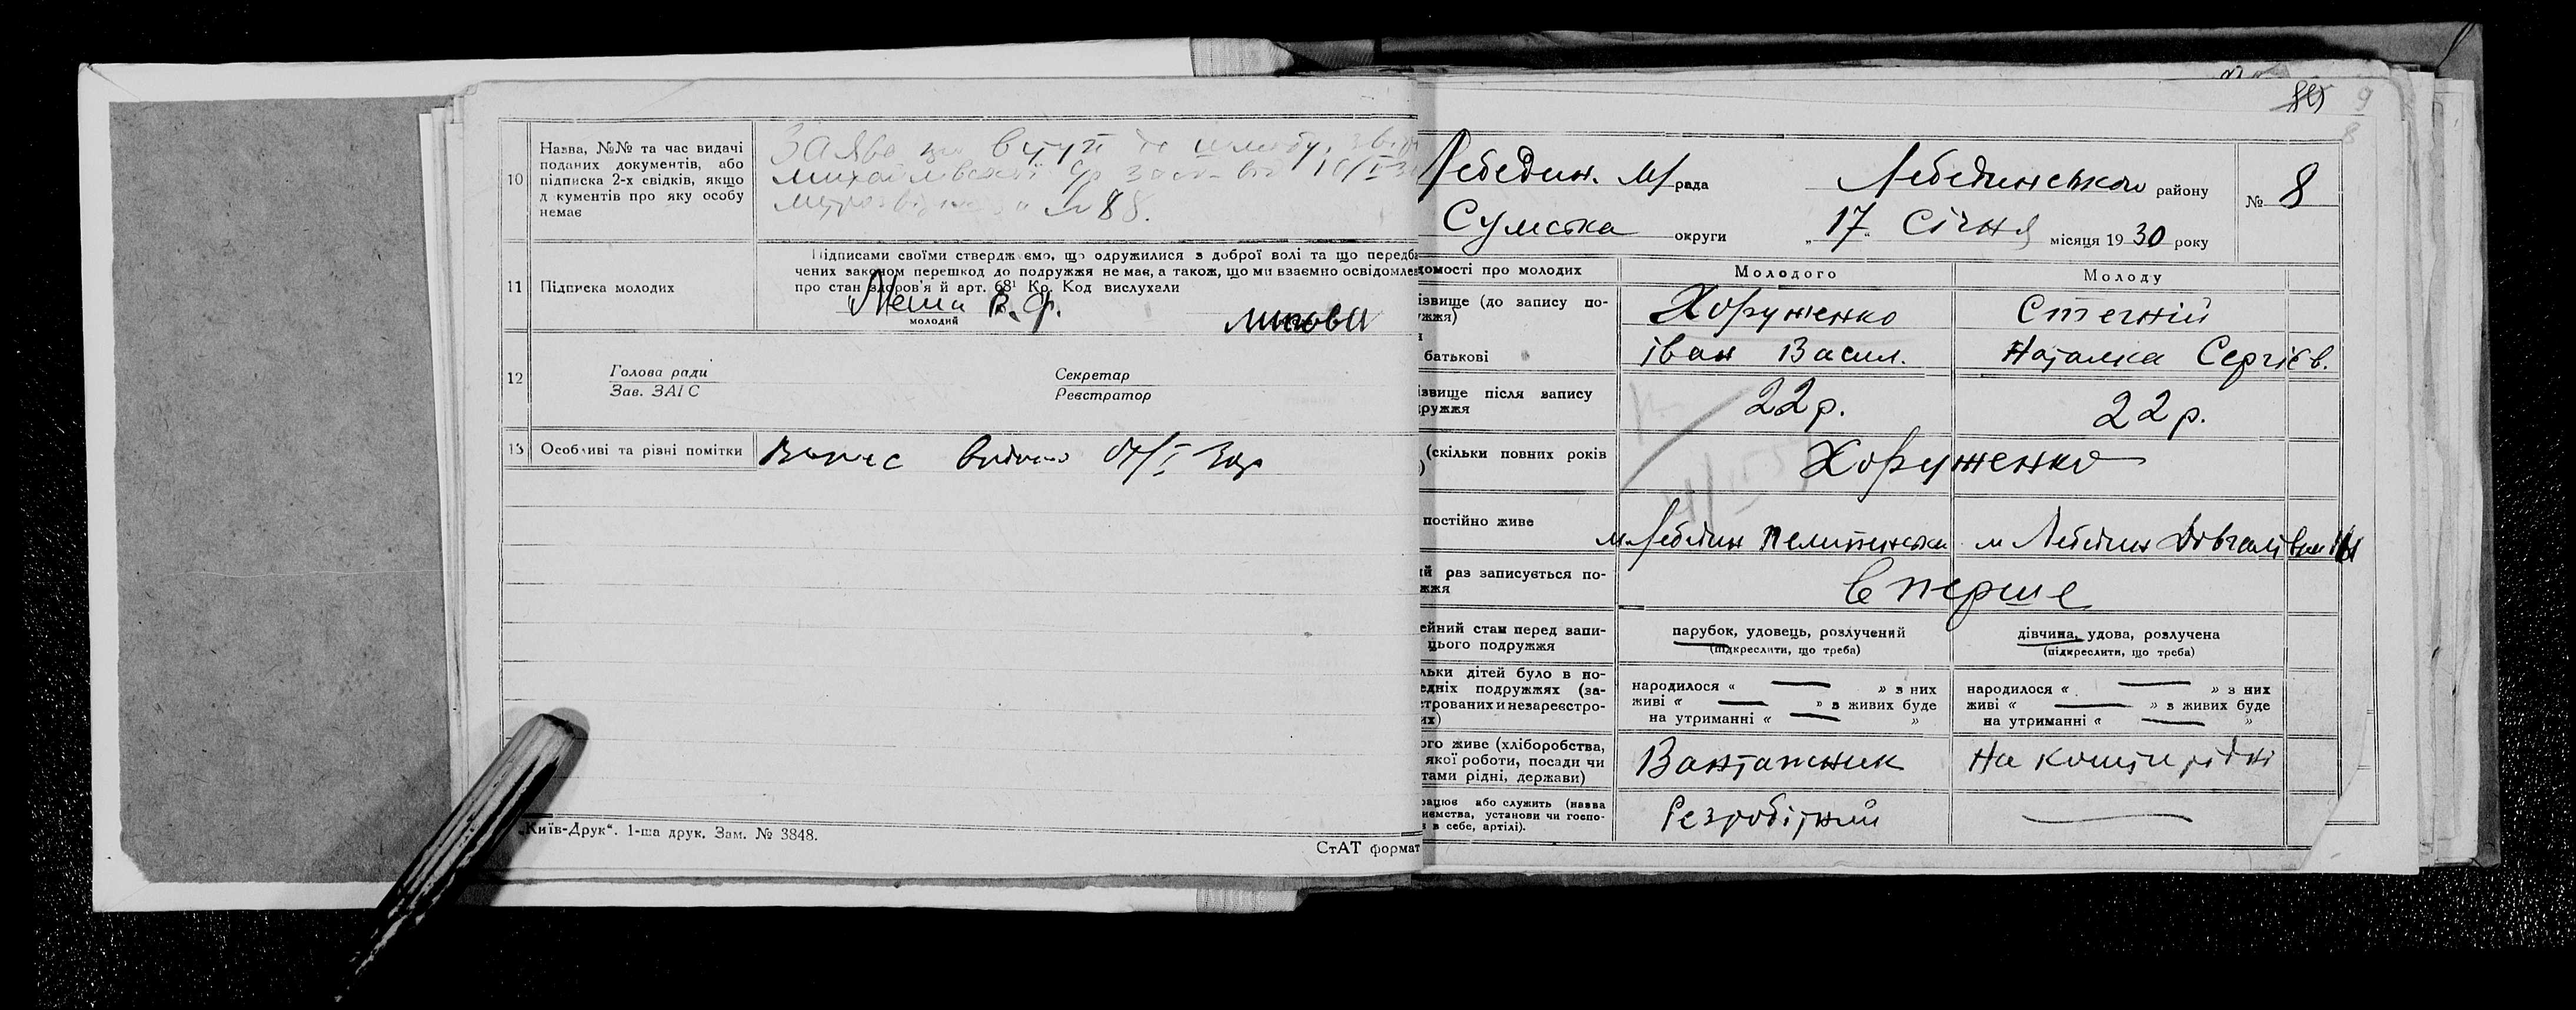 10 Назва, №№ та час видачі
поданих документів, або
підписка 2-х свідків, якщо
д кументів про яку особу
немає
Заява до
№ 88.
11 Підписка молодих
Підписами своїми стверджуємо, що одружилися з доброї волі та що передба
чених законом перешкод до подружжя не має, а також, що ми взаємно освідомлен
про стан здоров'я й арт. 68¹ Кр. Код вислухали
В. Ф.
молодий
12 Голова ради
Зав. ЗАГС
Секретар
Реєстратор
13 Особливі та різні помітки
„Київ-Друк“. 1-ша друк. Зам. № 3848.
СтАТ формат
9
8
Лебедин. М/рада Лебединського району № 8
Сумська округи „17“ Січня місяця 1930 року
домості про молодих Молодого Молоду
ізвище (до запису по-
ужжя)
Хоруженко Стегній
батькові Іван Васил. Наталка Сергієв.
ізвище після запису
дружжя
22 р. 22 р.
(скільки повних років
) Хоруженко
постійно живе
м Лебедин м Лебедин
ий раз записується по-
жжя
Вперше
ейний стан перед запи-
цього подружжя
парубок, удовець, розлучений
(підкреслити, що треба)
дівчина, удова, розлучена
(підкреслити, що треба)
льки дітей було в по-
едніх подружжях (за-
строваних и незареєстро-
их)
народилося « — » з них
живі « — » з живих буде
на утриманні « — »
народилося « — » з них
живі « — » з живих буде
на утриманні « — »
ого живе (хліборобства,
якої роботи, посади чи
тами рідні, держави)
Вантажник На кошти рідні
рацює або служить (назва
иємства, установи чи госпо-
и в себе, артілі).
Безробітний —